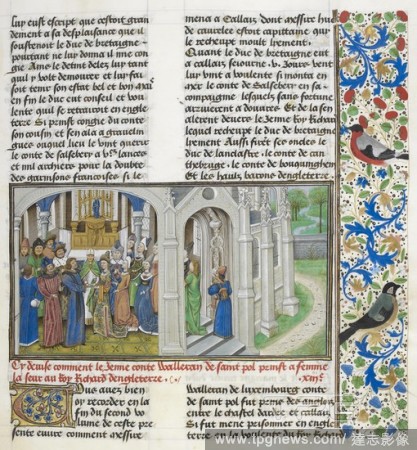 luy fust escript que cestoit gran
dement a sa desplaisance que il
soustenoit le duc de bretaigne
pourtant ne luy donna il nul con
gie Ame le detint delez luy tant
quil y volt demourer et luy fai
soit tenir son estat bel et bon mais
en fin le duc eut conseil et vou
lente quil se retrairoit en engle
terre Si prinst congie du conte
son cousin et sen ala a gravelin
gues ouquel lieu le vint querre
le conte de salseberi a vc. lances
et mil archiers pour la doubte
des garnisons francoises si le
mena a Callaiz dont messire hue
de caurelee estoit capittaine qui
le recheupt moult liement.
Quant le duc de bretaigne eut
a callaiz seiourne .v. Jours vent
luy vint a voulente si monta en
mer le conte de Salseberi en sa
compaignie lesquelz sans fortune
arriverent a douvres Et de la sen
alerent devers le Jenne roy Richard
lequel recheupt le duc de bretaigne
liement Aussi firent ses oncles le
duc de lanclastre le conte de can
thebruge. le conte de bouquinghem
Et les haulx barons dengleterre.
Cy devise comment le Jenne conte Walleran de saint pol prinst a femme
la seur au roy Richard dengleterre. xiiie
Vous avez bien
oy recorder en la
fin du second vo
lume de ceste pre
sente euvre comment messire
Walleran de luxembourg conte
de saint pol fut prins des anglois
entre le chastel dardre et callaiz
Si fut mene prisonnier en engle
terre en la voulente du roy Richard
www.tpgnews.com / 達志影像